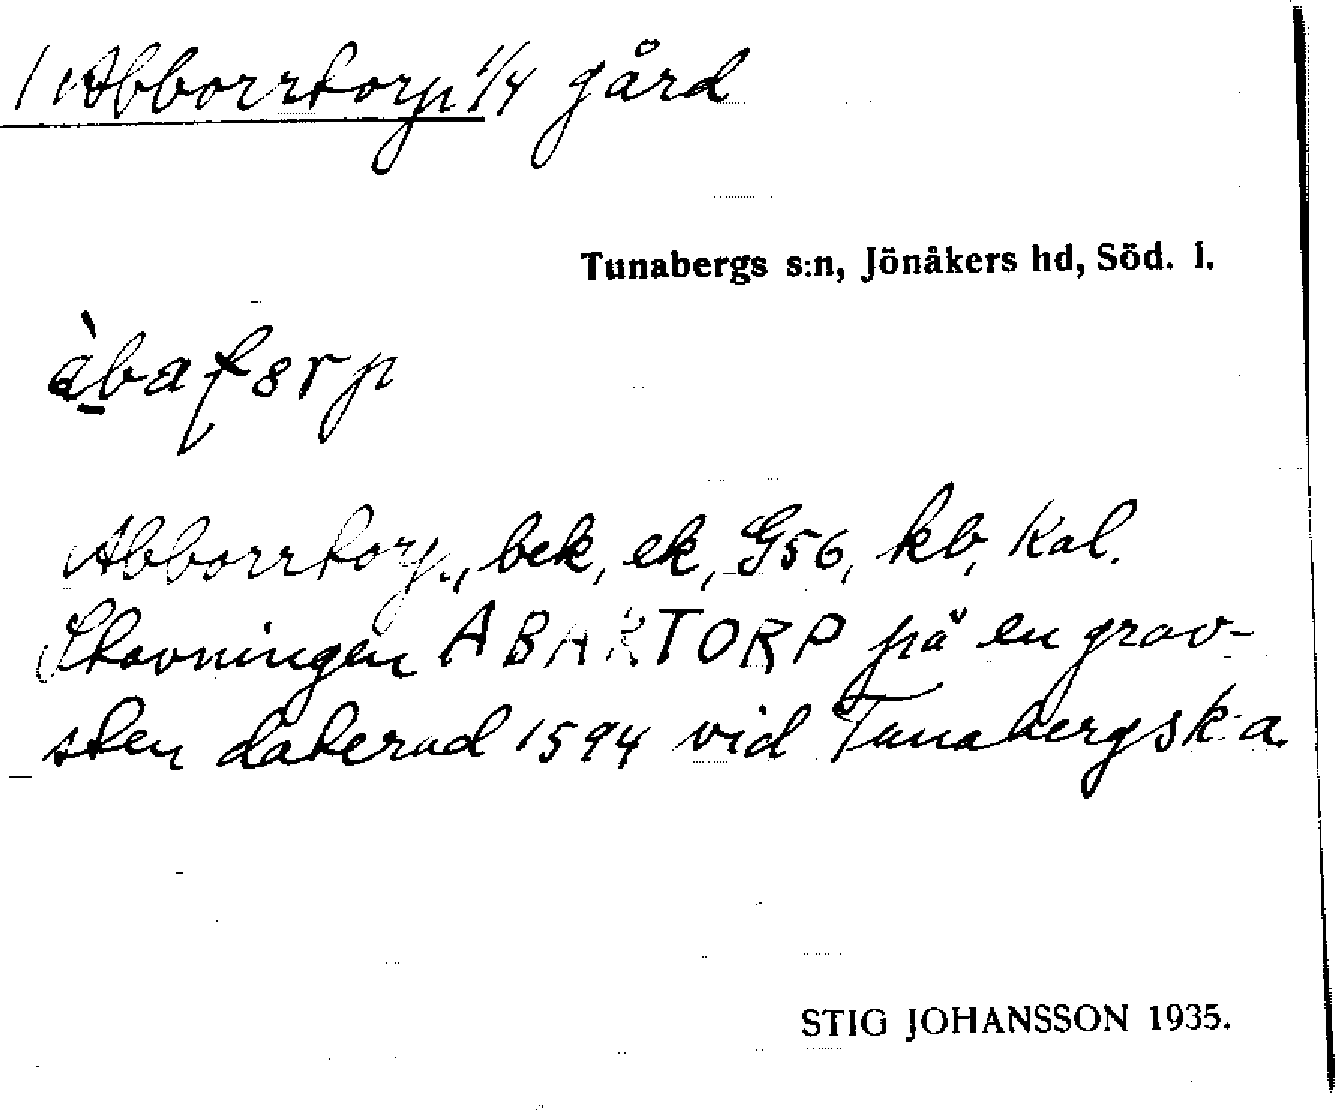 1 Abborrtorp 1/4 gård
Tunabergs s:n, Jönåkers hd, Söd. l.
Abborrtorp, bek, ek, G56, kb, Kal.
Stavningen ABAKTORP på en grav-
sten daterad 1594 vid Tunabergs k:a
STIG JOHANSSON 1935.